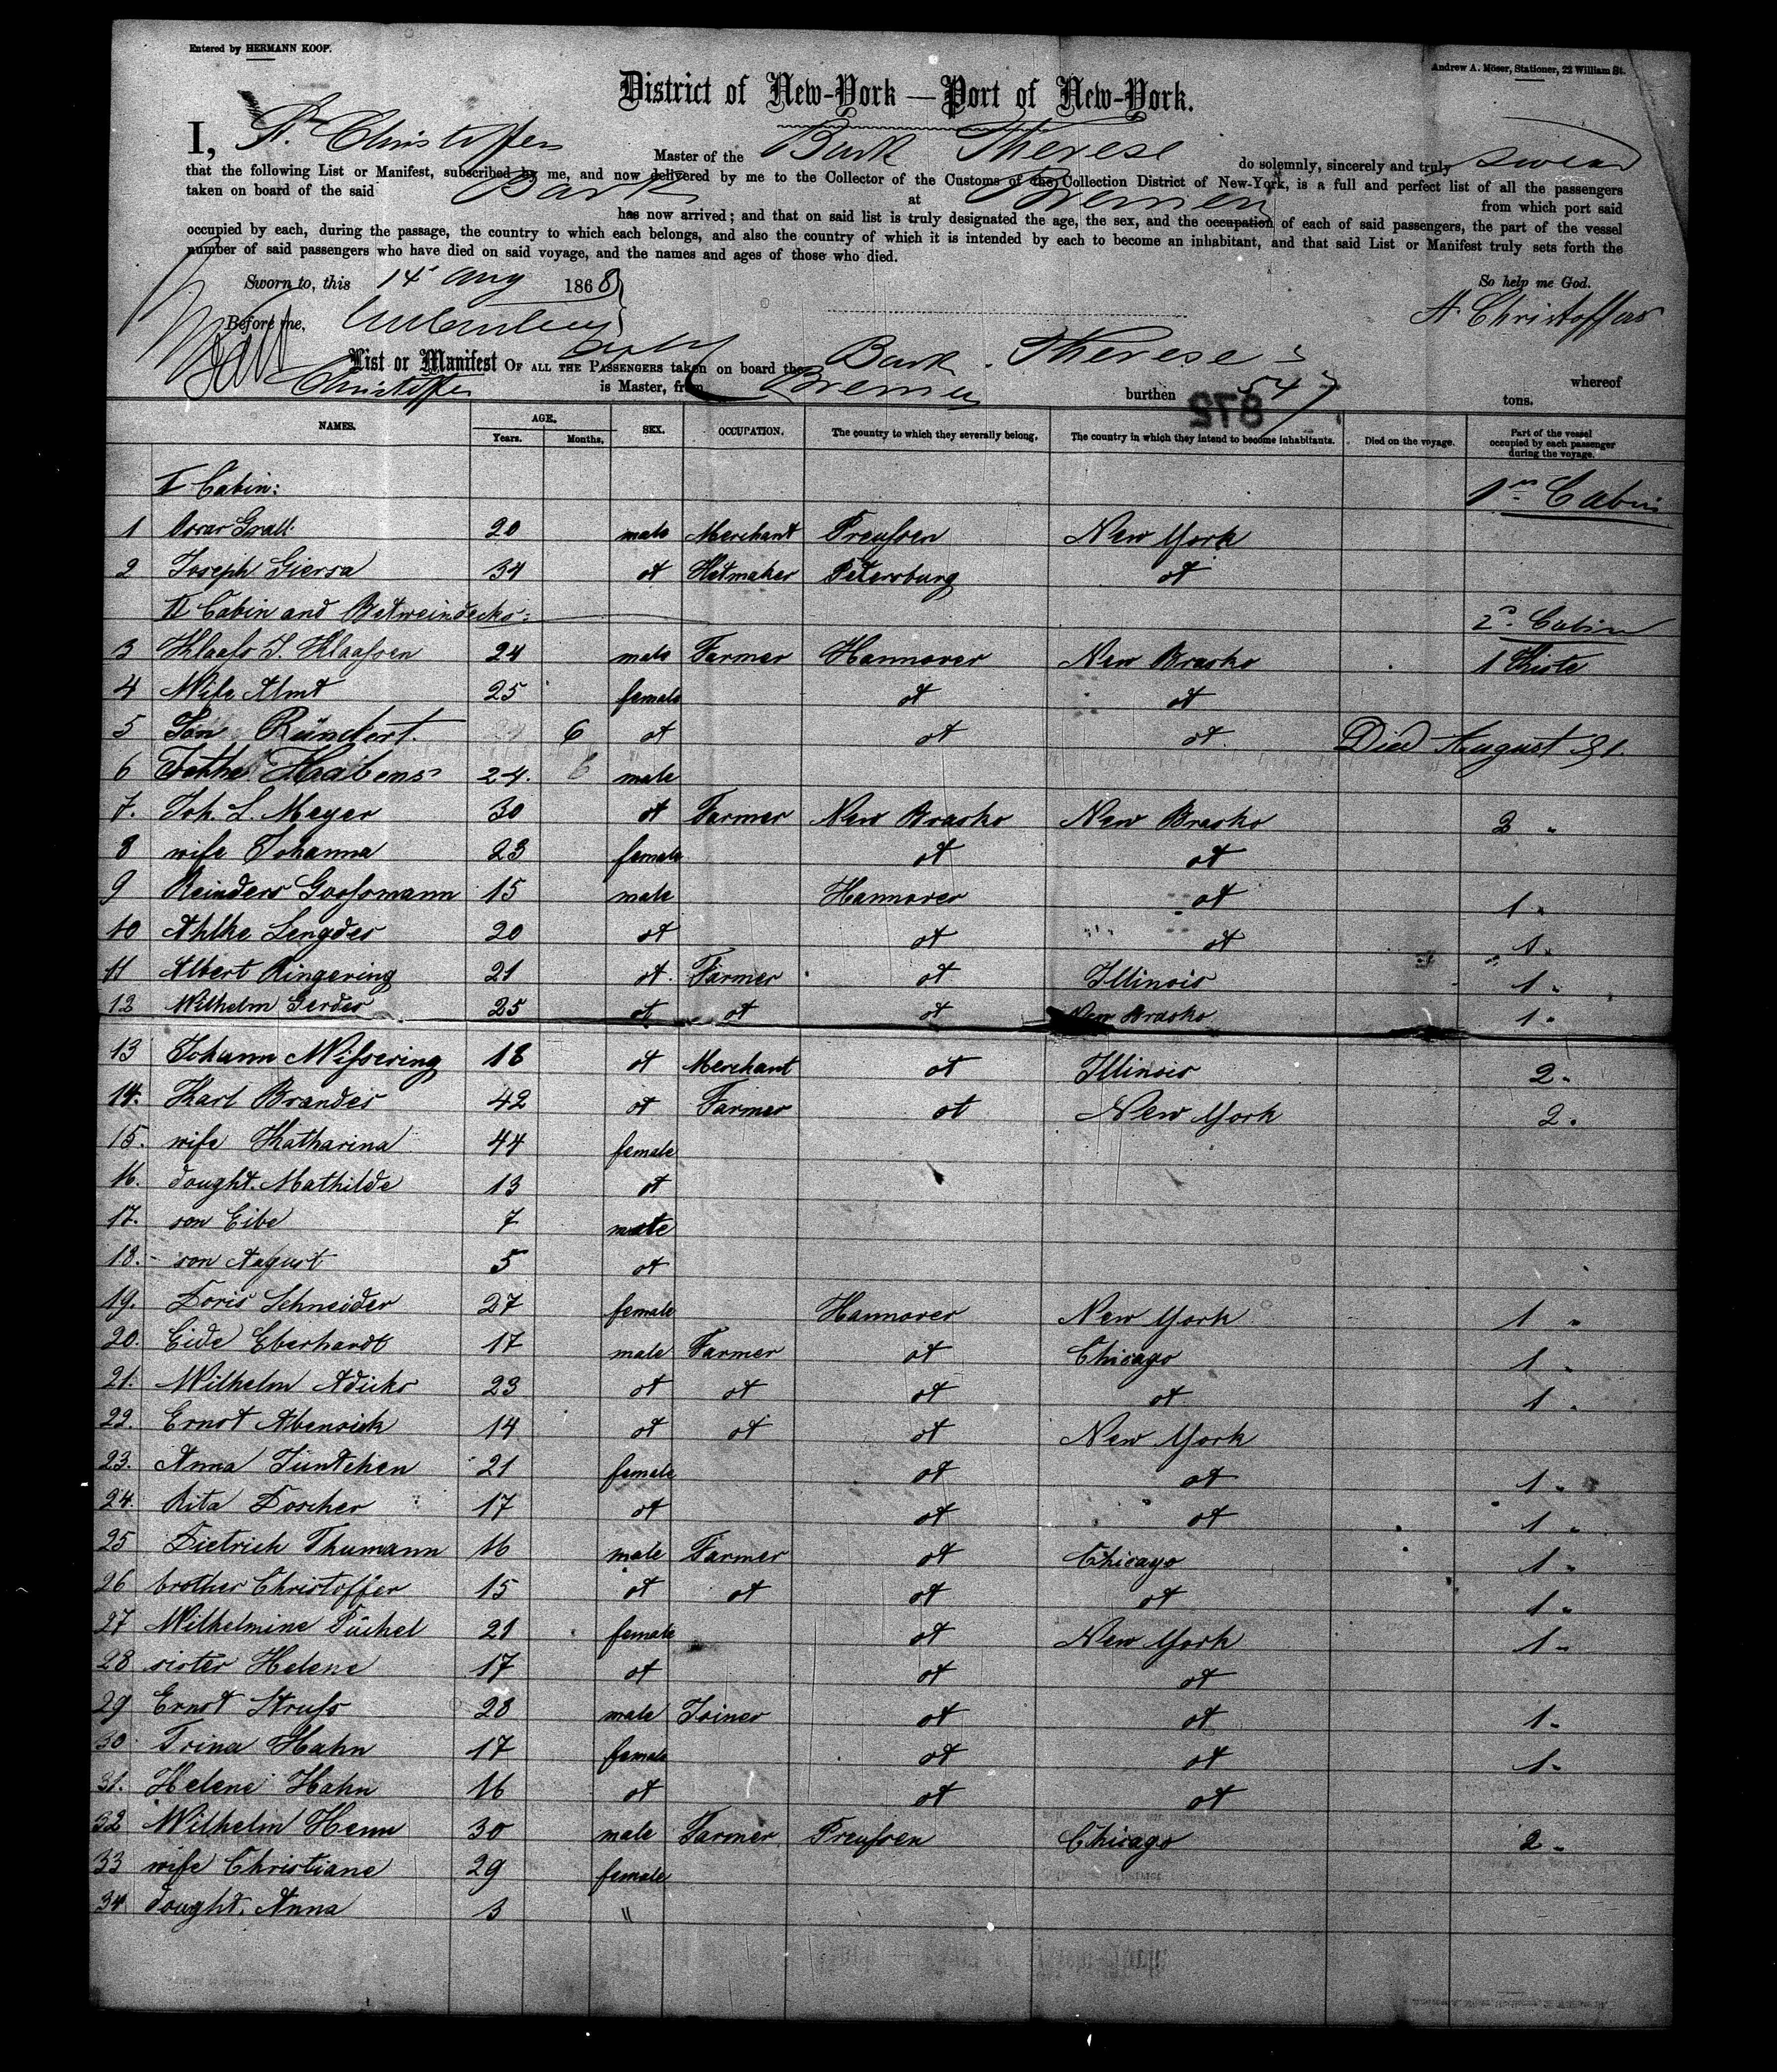 Entered by HERMANN KOOP.
Andrew A. Möser, Stationer, 22 William St.
District of New-York — Port of New-York.
I, A. Christoffers Master of the Bark Therese do solemnly, sincerely and truly swear
that the following List or Manifest, subscribed by me, and now delivered by me to the Collector of the Customs of the Collection District of New-York, is a full and perfect list of all the passengers
taken on board of the said Bark at Bremen from which port said
has now arrived; and that on said list is truly designated the age, the sex, and the occupation of each of said passengers, the part of the vessel
occupied by each, during the passage, the country to which each belongs, and also the country of which it is intended by each to become an inhabitant, and that said List or Manifest truly sets forth the
number of said passengers who have died on said voyage, and the names and ages of those who died.
Sworn to, this 14 Aug 1868 So help me God.
Before me, A. Christoffers
List or Manifest OF ALL THE PASSENGERS taken on board the Bark Therese whereof
Christoffers is Master, from Bremen burthen 547 tons.
872
NAMES. AGE. Years. Months. SEX. OCCUPATION. The country to which they severally belong. The country in which they intend to become inhabitants. Died on the voyage. Part of the vessel occupied by each passenger during the voyage.
I Cabin: 1st Cabin
1 Oscar Grall 20 male Merchant Preußen New York
2 Joseph Giersa 34 ot Hatmaker Petersburg ot
II Cabin and Betweindecks: 2d Cabin
3 Klaaß J. Klaaßen 24 male Farmer Hannover New Brasko 1 Kiste
4 Wife Almt 25 female ot ot
5 Son Ründert 6 ot ot ot Died August 81.
6 24. male
7. Joh. L. Meyer 30 ot Farmer New Brasko New Brasko 2 "
8 wife Johanna 23 female ot ot
9 Reinders Gooßmann 15 male Hannover ot 1 "
10 Ahlke Lengdes 20 ot ot ot 1 "
11 Albert Ringering 21 ot Farmer ot Illinois 1 "
12 Wilhelm Gerdes 25 ot ot ot New Brasko 1 "
13 Johann Wißering 18 ot Merchant ot Illinois 2 "
14. Karl Brandes 42 ot Farmer ot New York 2 "
15. wife Katharina 44 female
16. dought. Mathilde 13 ot
17. son Eibe 7 male
18. son August 5 ot
19. Doris Schneider 27 female Hannover New York 1 "
20. Eide Eberhardt 17 male Farmer ot Chicago 1 "
21. Wilhelm Adicks 23 ot ot ot ot 1 "
22. Ernst Abensick 14 ot ot ot New York
23. Anna Tüntchen 21 female ot ot 1 "
24. Rita Doscher 17 ot ot ot 1 "
25 Dietrich Thumann 16 male Farmer ot Chicago 1 "
26 brother Christoffer 15 ot ot ot ot 1 "
27 Wilhelmine Püchel 21 female ot New York 1 "
28 sister Helene 17 ot ot ot
29 Ernst Struß 28 male Joiner ot ot 1 "
30. Trina Hahn 17 female ot ot 1 "
31. Helene Hahn 16 ot ot ot
32 Wilhelm Henn 30 male Farmer Preußen Chicago 2 "
33 wife Christiane 29 female
34 dought. Anna 3 "